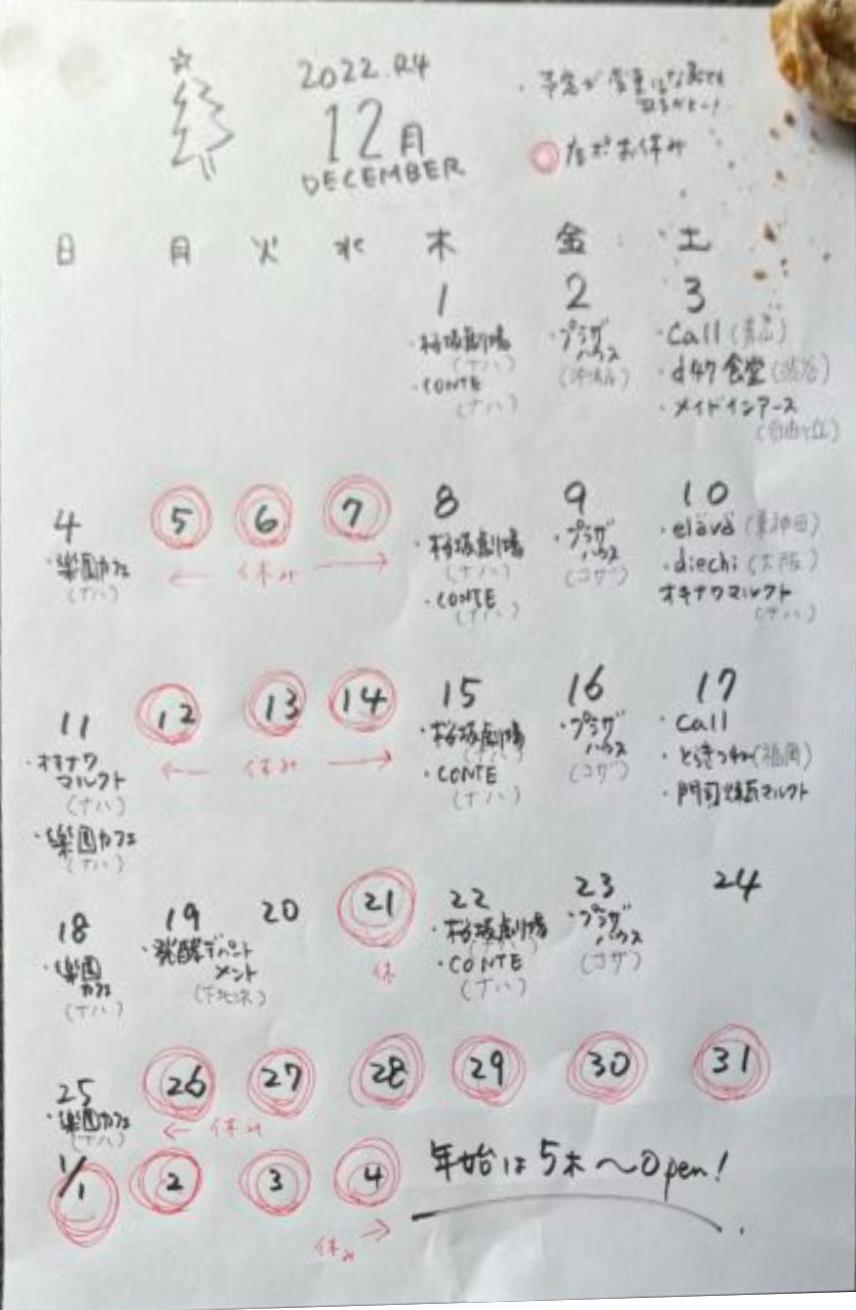 2022.R4
12月
DECEMBER
予定が変更になる
お休み
日 月 火 水 木 金 土
1 2 3
・桜坂劇場
(ナハ)
・CONTE
(ナハ)
・プラザ
ハウス
・Call (青山)
・d47食堂 (渋谷)
・メイドインアース
(自由ヶ丘)
4 5 6 7 8 9 10
・楽園カフェ
(ナハ)
← 休み →
・桜坂劇場
(ナハ)
・CONTE
(ナハ)
・プラザ
ハウス
(コザ)
・elävä (東神田)
・diechi (大阪)
オキナワマルクト
(ナハ)
11 12 13 14 15 16 17
・オキナワ
マルクト
(ナハ)
・楽園カフェ
(ナハ)
← 休み →
・桜坂劇場
・CONTE
(ナハ)
・プラザ
ハウス
(コザ)
・Call
・とらきつね(福岡)
・門司マルクト
18 19 20 21 22 23 24
・楽園
カフェ
(ナハ)
・発酵デパート
メント
(下北沢)
休
・桜坂劇場
・CONTE
(ナハ)
・プラザ
ハウス
(コザ)
25 26 27 28 29 30 31
・楽園カフェ
(ナハ)
← 休み
1/1 2 3 4
休み →
年始は5木〜Open!